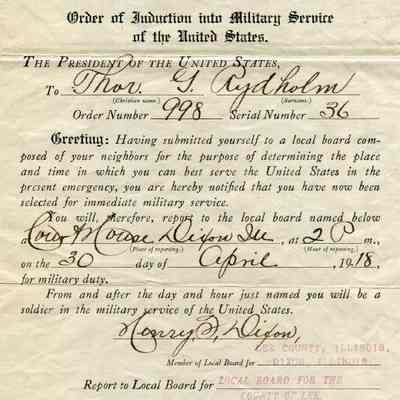 Order of Induction into Military Service
of the United States.
THE PRESIDENT OF THE UNITED STATES,
To Thor. G. Rydholm
(Christian name.) (Surname.)
Order Number 998 Serial Number 36
Greeting: Having submitted yourself to a local board com-
posed of your neighbors for the purpose of determining the place
and time in which you can best serve the United States in the
present emergency, you are hereby notified that you have now been
selected for immediate military service.
You will, therefore, report to the local board named below
at Court House Dixon Ill, at 2 P m.,
(Place of reporting.) (Hour of reporting.)
on the 30 day of April, 1918,
for military duty.
From and after the day and hour just named you will be a
soldier in the military service of the United States.
Henry S. Dixon,
LEE COUNTY, ILLINOIS,
Member of Local Board for DIXON, ILLINOIS
Report to Local Board for LOCAL BOARD FOR THE
COUNTY OF LEE